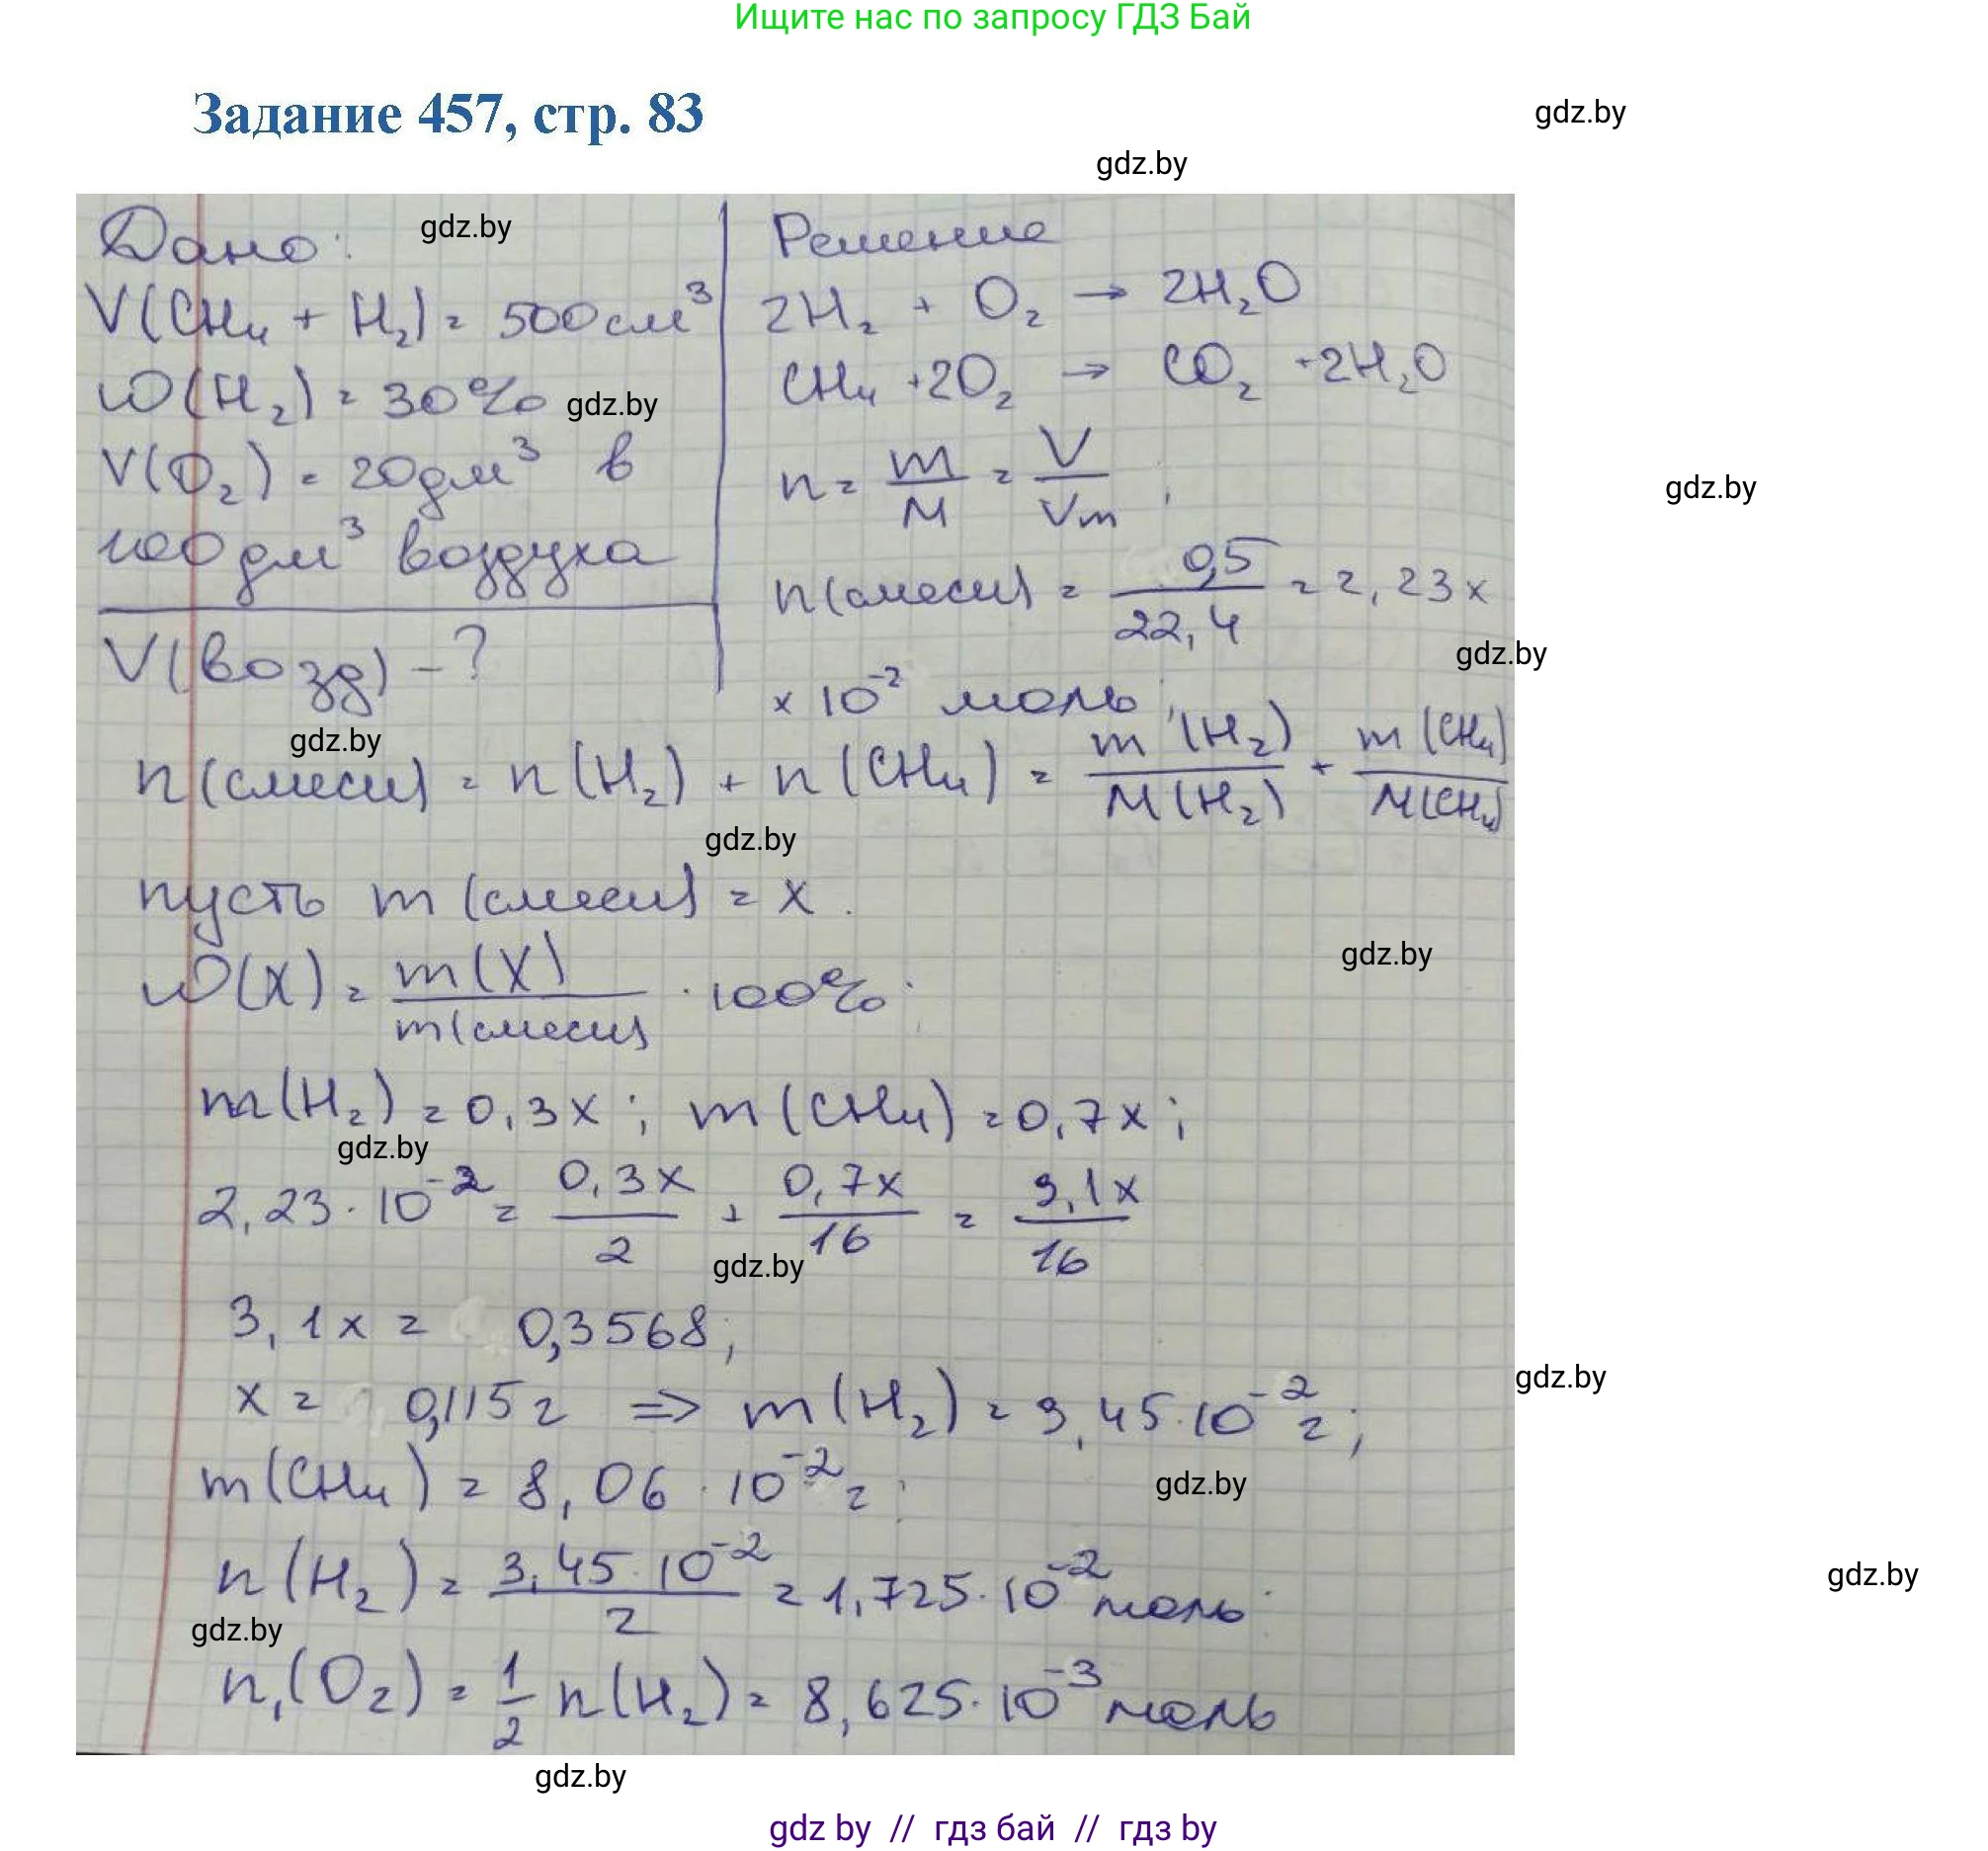 Ищите нас по запросу ГДЗ Бай
Задание 457, стр. 83
gdz.by
gdz.by
gdz.by
Дано:
V(CH₄ + H₂) = 500 см³
ω(H₂) = 30% gdz.by
V(O₂) = 20 дм³ в
100 дм³ воздуха
V(возд) - ?
gdz.by
Решение
2H₂ + O₂ → 2H₂O
CH₄ + 2O₂ → CO₂ + 2H₂O
n = m/M = V/Vm ;
gdz.by
n(смеси) = 0,5/22,4 = 2,23 ×
gdz.by
× 10⁻² моль;
n(смеси) = n(H₂) + n(CH₄) = m(H₂)/M(H₂) + m(CH₄)/M(CH₄)
gdz.by
пусть m(смеси) = x.
gdz.by
ω(X) = m(X)/m(смеси) · 100%;
m(H₂) = 0,3x; m(CH₄) = 0,7x;
gdz.by
2,23 · 10⁻² = 0,3x/2 + 0,7x/16 = 3,1x/16
gdz.by
3,1x = 0,3568;
gdz.by
x = 0,115 г ⇒ m(H₂) = 3,45 · 10⁻² г;
m(CH₄) = 8,06 · 10⁻² г;
gdz.by
n(H₂) = 3,45 · 10⁻²/2 = 1,725 · 10⁻² моль;
gdz.by
gdz.by
n₁(O₂) = 1/2 n(H₂) = 8,625 · 10⁻³ моль
gdz.by
gdz by // гдз бай // гдз by